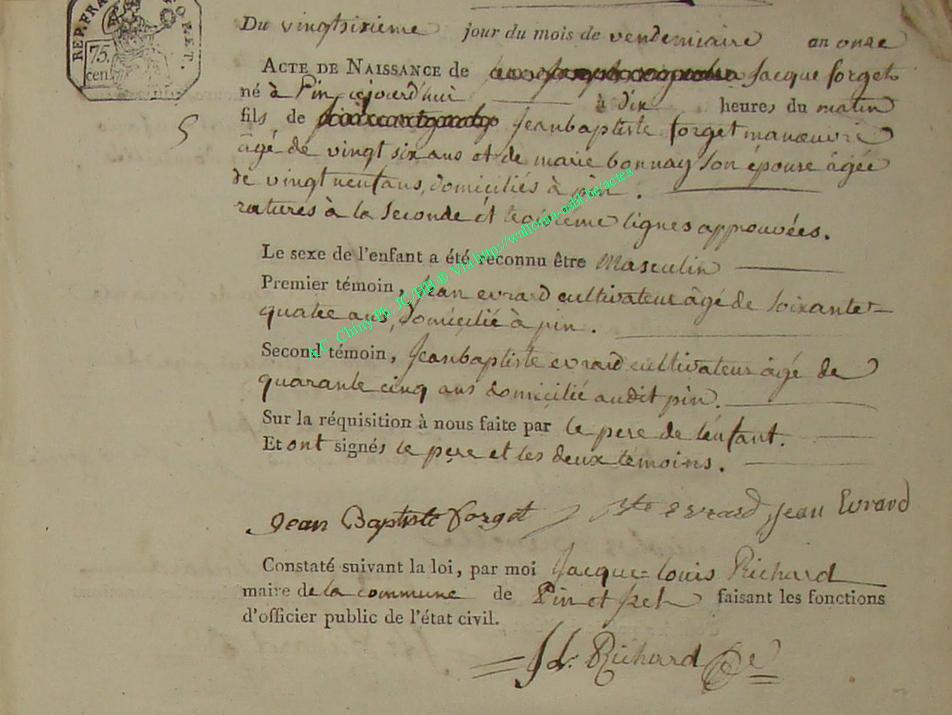 REP. FRA
75.
cen.
Du vingtsixieme jour du mois de vendemiaire an onze
ACTE DE NAISSANCE de Jacque forget
né à Pin, ajourd'hui à dix heures du matin
fils de Jeanbaptiste forget manœuvre
âgé de vingt six ans et de marie bonnay son épouse âgée
de vingt neuf ans, domiciliés à pin.
ratures à la seconde et troisieme lignes approuvées.
5
Le sexe de l'enfant a été reconnu être Masculin
Premier témoin, Jean evrard cultivateur âgé de soixante-
quatre ans, domicilié à pin.
Second témoin, Jeanbaptiste evrard cultivateur âgé de
quarante cinq ans domicilié audit pin.
Sur la réquisition à nous faite par le pere de l'enfant.
Et ont signés le pere et les deux témoins.
Jean Baptiste forget J Bte evrard, Jean Evrard
Constaté suivant la loi, par moi Jacque-Louis Richard
maire de la commune de Pin et faisant les fonctions
d'officier public de l'état civil.
J L. Richard